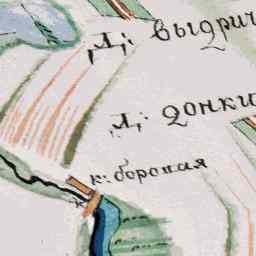 Д: выдрич
Д: донки
к: боровая